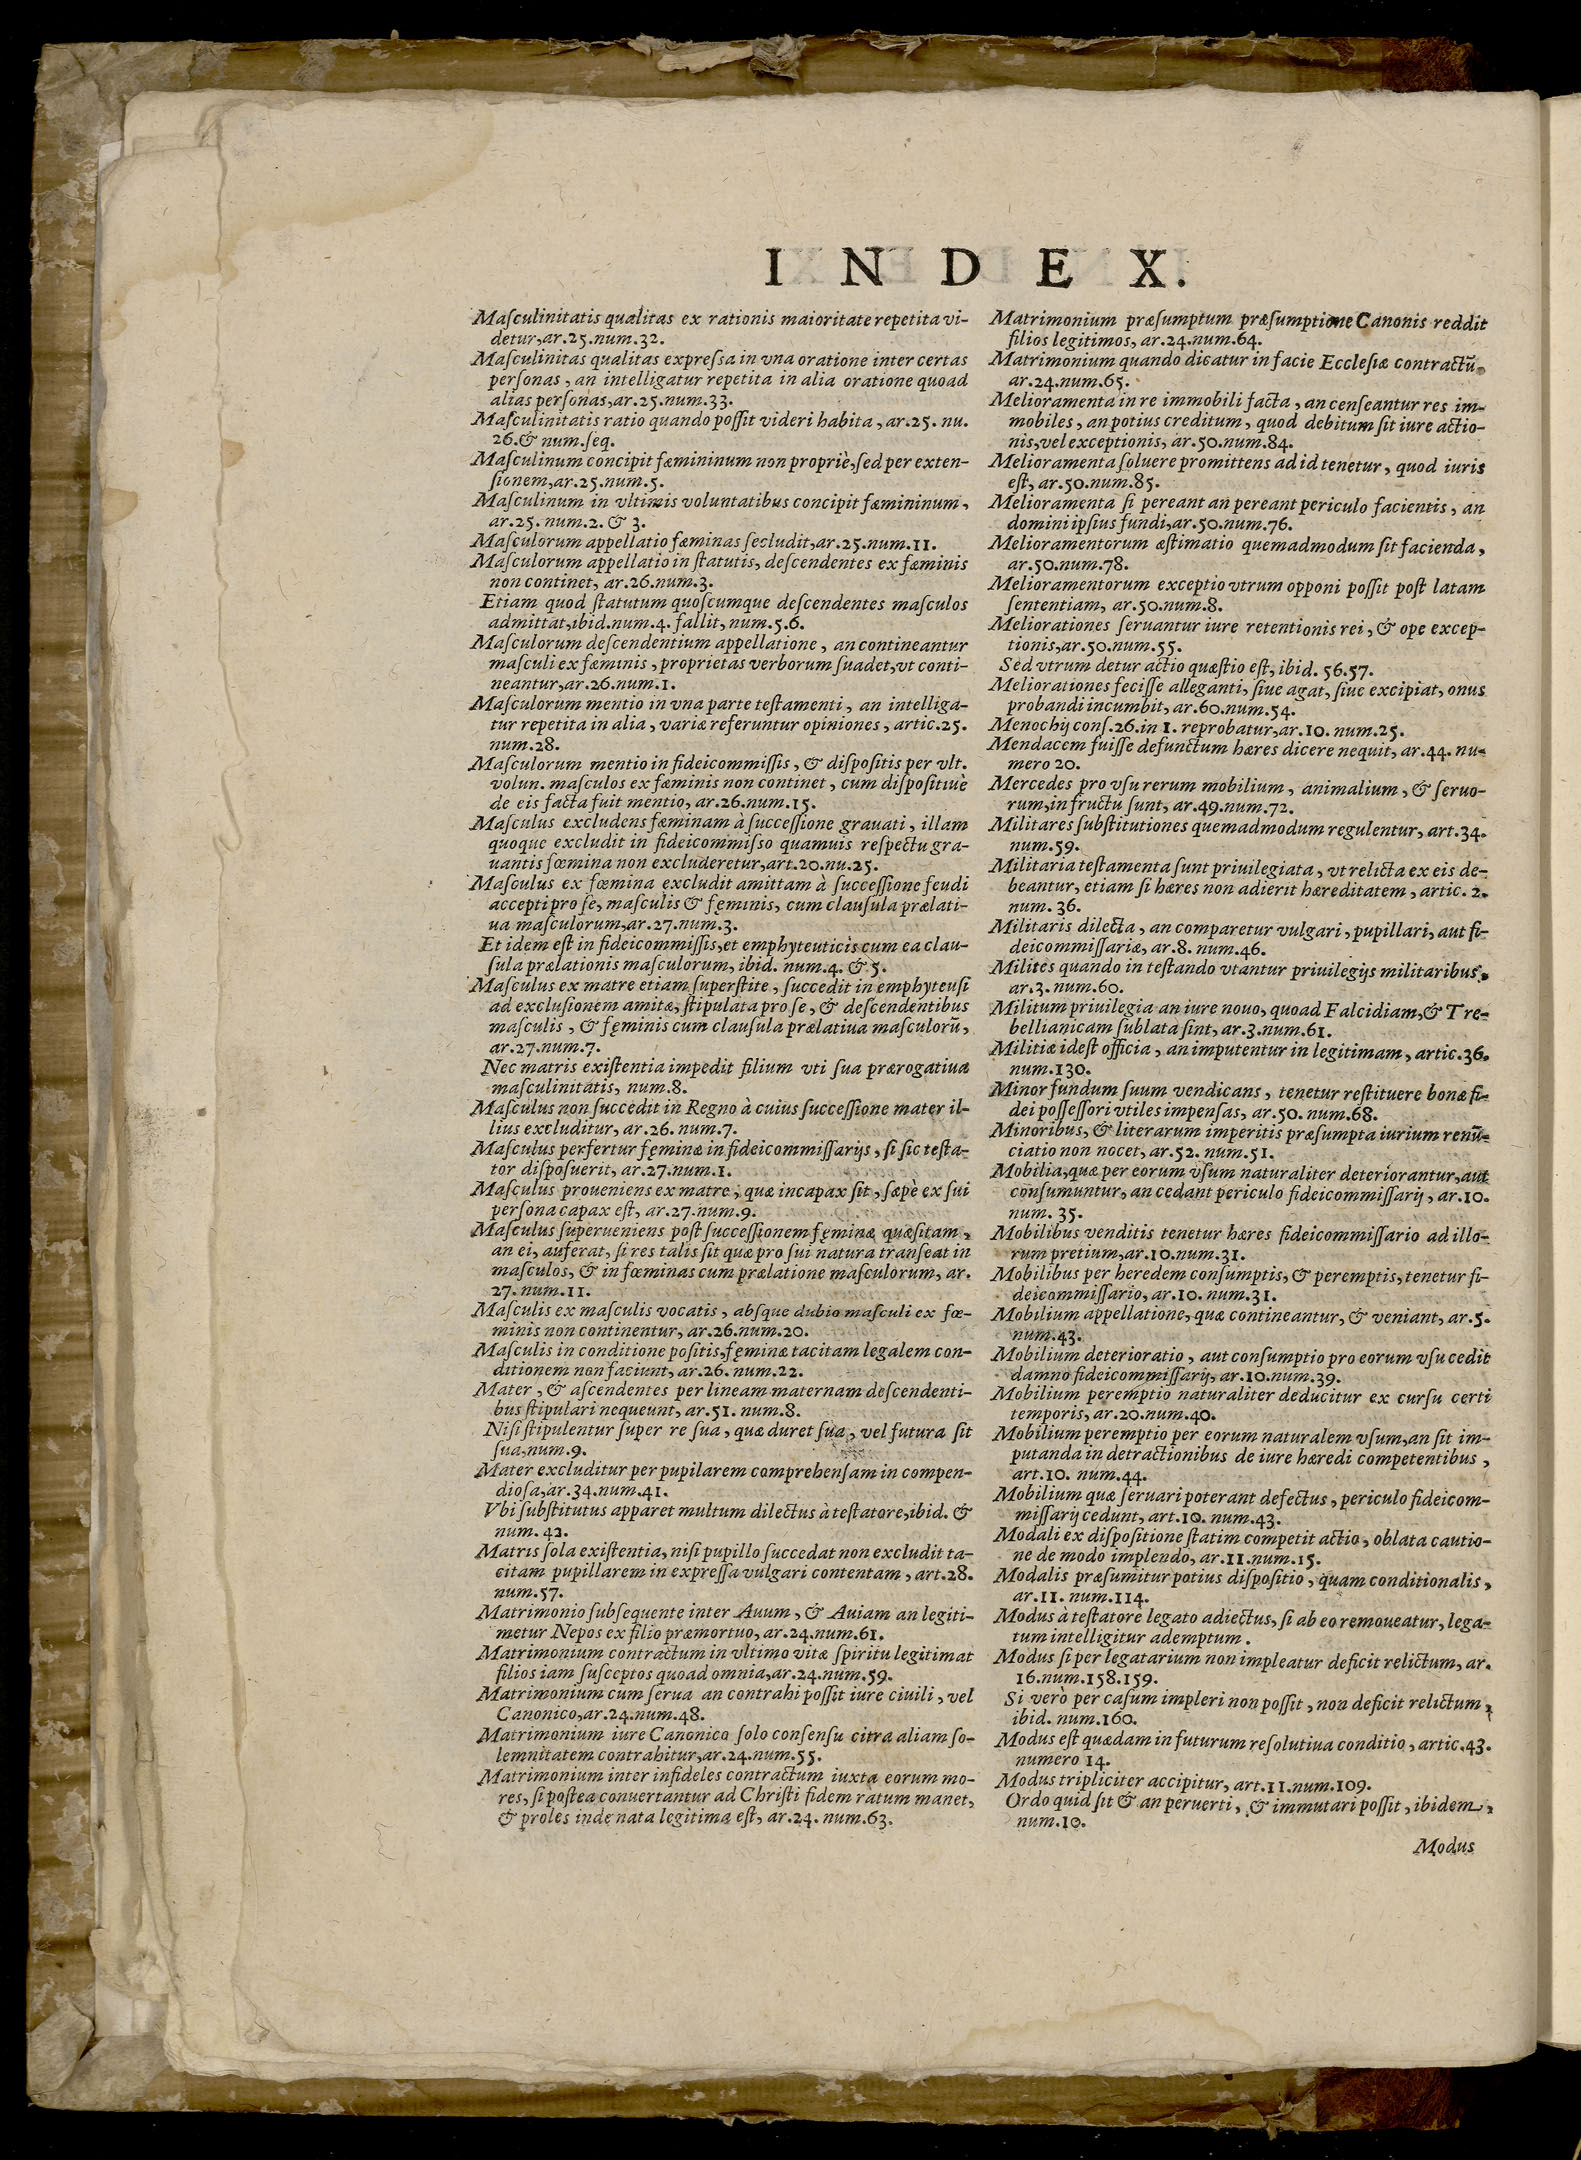 INDEX.
Maſculinitatis qualitas ex rationis maioritate repetita vi-
detur,ar.25.num.32.
Maſculinitas qualitas expreſſa in vna oratione inter certas
perſonas, an intelligatur repetita in alia oratione quoad
alias perſonas,ar.25.num.33.
Maſculinitatis ratio quando poſſit videri habita, ar.25. nu.
26.& num.ſeq.
Maſculinum concipit fæmininum non propriè,ſed per exten-
ſionem,ar.25.num.5.
Maſculinum in vltimis voluntatibus concipit fæmininum,
ar.25. num.2. & 3.
Maſculorum appellatio fæminas ſecludit,ar.25.num.11.
Maſculorum appellatio in ſtatutis, deſcendentes ex fæminis
non continet, ar.26.num.3.
Etiam quod ſtatutum quoſcumque deſcendentes maſculos
admittat,ibid.num.4. fallit, num.5.6.
Maſculorum deſcendentium appellatione, an contineantur
maſculi ex fæminis, proprietas verborum ſuadet,vt conti-
neantur,ar.26.num.1.
Maſculorum mentio in vna parte teſtamenti, an intelliga-
tur repetita in alia, variæ referuntur opiniones, artic.25.
num.28.
Maſculorum mentio in fideicommiſſis, & diſpoſitis per vlt.
volun. maſculos ex fæminis non continet, cum diſpoſitiuè
de eis facta fuit mentio, ar.26.num.15.
Maſculus excludens fæminam à ſucceſſione grauati, illam
quoque excludit in fideicommiſſo quamuis reſpectu gra-
uantis fœmina non excluderetur,art.20.nu.25.
Maſculus ex fœmina excludit amittam à ſucceſſione feudi
accepti pro ſe, maſculis & fęminis, cum clauſula prælati-
ua maſculorum,ar.27.num.3.
Et idem eſt in fideicommiſſis,et emphyteuticis cum ea clau-
ſula prælationis maſculorum, ibid. num.4. & 5.
Maſculus ex matre etiam ſuperſtite, ſuccedit in emphyteuſi
ad excluſionem amitæ, ſtipulata pro ſe, & deſcendentibus
maſculis, & fęminis cum clauſula prælatiua maſculorū,
ar.27.num.7.
Nec matris exiſtentia impedit filium vti ſua prærogatiua
maſculinitatis, num.8.
Maſculus non ſuccedit in Regno à cuius ſucceſſione mater il-
lius excluditur, ar.26. num.7.
Maſculus perfertur fęminæ in fideicommiſſarijs, ſi ſic teſta-
tor diſpoſuerit, ar.27.num.1.
Maſculus proueniens ex matre, quæ incapax ſit, ſæpè ex ſui
perſona capax eſt, ar.27.num.9.
Maſculus ſuperueniens poſt ſucceſſionem fęminæ quæſitam,
an ei, auferat, ſi res talis ſit quæ pro ſui natura tranſeat in
maſculos, & in fœminas cum prælatione maſculorum, ar.
27.num.11.
Maſculis ex maſculis vocatis, abſque dubio maſculi ex fœ-
minis non continentur, ar.26.num.20.
Maſculis in conditione poſitis,fęminæ tacitam legalem con-
ditionem non faciunt, ar.26. num.22.
Mater, & aſcendentes per lineam maternam deſcendenti-
bus ſtipulari nequeunt, ar.51. num.8.
Niſi ſtipulentur ſuper re ſua, quæ duret ſua, vel futura ſit
ſua,num.9.
Mater excluditur per pupilarem comprehenſam in compen-
dioſa,ar.34.num.41.
Vbi ſubſtitutus apparet multum dilectus à teſtatore,ibid. &
num.42.
Matris ſola exiſtentia, niſi pupillo ſuccedat non excludit ta-
citam pupillarem in expreſſa vulgari contentam, art.28.
num.57.
Matrimonio ſubſequente inter Auum, & Auiam an legiti-
metur Nepos ex filio præmortuo, ar.24.num.61.
Matrimonium contractum in vltimo vitæ ſpiritu legitimat
filios iam ſuſceptos quoad omnia,ar.24.num.59.
Matrimonium cum ſerua an contrahi poſſit iure ciuili, vel
Canonico,ar.24.num.48.
Matrimonium iure Canonico ſolo conſenſu citra aliam ſo-
lemnitatem contrahitur,ar.24.num.55.
Matrimonium inter infideles contractum iuxta eorum mo-
res, ſi poſtea conuertantur ad Chriſti fidem ratum manet,
& proles inde nata legitima eſt, ar.24. num.63.
Matrimonium præſumptum præſumptione Canonis reddit
filios legitimos, ar.24.num.64.
Matrimonium quando dicatur in facie Eccleſiæ contractū,
ar.24.num.65.
Melioramenta in re immobili facta, an cenſeantur res im-
mobiles, an potius creditum, quod debitum ſit iure actio-
nis,vel exceptionis, ar.50.num.84.
Melioramenta ſoluere promittens ad id tenetur, quod iuris
eſt, ar.50.num.85.
Melioramenta ſi pereant an pereant periculo facientis, an
domini ipſius fundi,ar.50.num.76.
Melioramentorum æſtimatio quemadmodum ſit facienda,
ar.50.num.78.
Melioramentorum exceptio vtrum opponi poſſit poſt latam
ſententiam, ar.50.num.8.
Meliorationes ſeruantur iure retentionis rei, & ope excep-
tionis,ar.50.num.55.
Sed vtrum detur actio quæſtio eſt, ibid. 56.57.
Meliorationes feciſſe alleganti, ſiue agat, ſiue excipiat, onus
probandi incumbit, ar.60.num.54.
Menochij conſ.26.in 1. reprobatur,ar.10. num.25.
Mendacem fuiſſe defunctum hæres dicere nequit, ar.44. nu-
mero 20.
Mercedes pro vſu rerum mobilium, animalium, & ſeruo-
rum,in fructu ſunt, ar.49.num.72.
Militares ſubſtitutiones quemadmodum regulentur, art.34.
num.59.
Militaria teſtamenta ſunt priuilegiata, vt relicta ex eis de-
beantur, etiam ſi hæres non adierit hæreditatem, artic. 2.
num. 36.
Militaris dilecta, an comparetur vulgari, pupillari, aut fi-
deicommiſſariæ, ar.8. num.46.
Milites quando in teſtando vtantur priuilegijs militaribus,
ar.3. num.60.
Militum priuilegia an iure nouo, quoad Falcidiam,& Tre-
bellianicam ſublata ſint, ar.3.num.61.
Militiæ ideſt officia, an imputentur in legitimam, artic.36.
num.130.
Minor fundum ſuum vendicans, tenetur reſtituere bonæ fi-
dei poſſeſſori vtiles impenſas, ar.50. num.68.
Minoribus, & literarum imperitis præſumpta iurium renū-
ciatio non nocet, ar.52. num.51.
Mobilia,quæ per eorum vſum naturaliter deteriorantur,aut
conſumuntur, an cedant periculo fideicommiſſarij, ar.10.
num. 35.
Mobilibus venditis tenetur hæres fideicommiſſario ad illo-
rum pretium,ar.10.num.31.
Mobilibus per heredem conſumptis, & peremptis, tenetur fi-
deicommiſſario, ar.10. num.31.
Mobilium appellatione, quæ contineantur, & veniant, ar.5.
num.43.
Mobilium deterioratio, aut conſumptio pro eorum vſu cedit
damno fideicommiſſarij, ar.10.num.39.
Mobilium peremptio naturaliter deducitur ex curſu certi
temporis, ar.20.num.40.
Mobilium peremptio per eorum naturalem vſum,an ſit im-
putanda in detractionibus de iure hæredi competentibus,
art.10. num.44.
Mobilium quæ ſeruari poterant defectus, periculo fideicom-
miſſarij cedunt, art.10. num.43.
Modali ex diſpoſitione ſtatim competit actio, oblata cautio-
ne de modo implendo, ar.11.num.15.
Modalis præſumitur potius diſpoſitio, quam conditionalis,
ar.11. num.114.
Modus à teſtatore legato adiectus, ſi ab eo remoueatur, lega-
tum intelligitur ademptum.
Modus ſi per legatarium non impleatur deficit relictum, ar.
16.num.158.159.
Si verò per caſum impleri non poſſit, non deficit relictum,
ibid. num.160.
Modus eſt quædam in futurum reſolutiua conditio, artic.43.
numero 14.
Modus tripliciter accipitur, art.11.num.109.
Ordo quid ſit & an peruerti, & immutari poſſit, ibidem,
num.10.
Modus